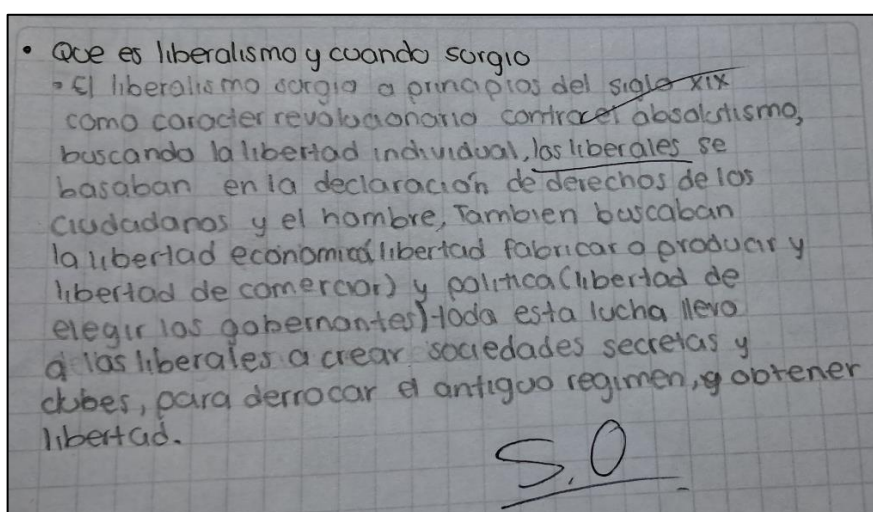 • Que es liberalismo y cuando surgio
- El liberalismo surgio a principios del siglo XIX
como caracter revolucionario contra el absolutismo,
buscando la libertad individual, los liberales se
basaban en la declaración de derechos de los
ciudadanos y el hombre, Tambien buscaban
la libertad economica(libertad fabricar o producir y
libertad de comerciar) y politica(libertad de
elegir los gobernantes) toda esta lucha llevo
a los liberales a crear sociedades secretas y
clubes, para derrocar el antiguo regimen, y obtener
libertad.
5.0